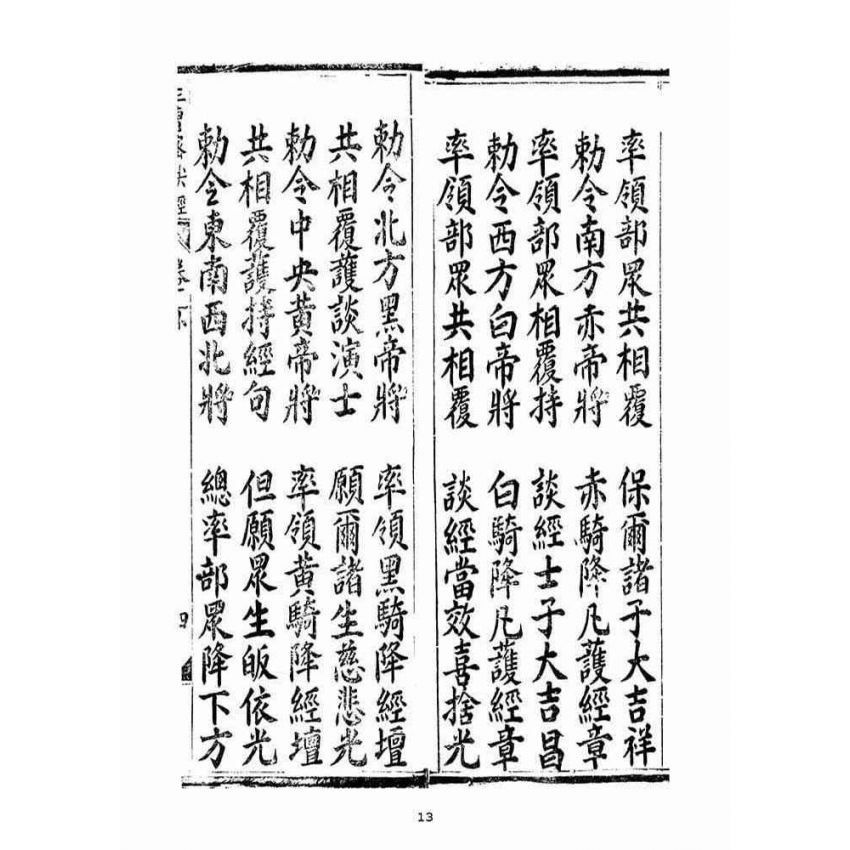 率領部眾共相覆 保爾諸子大吉祥
勅令南方赤帝將 赤騎降凡護經章
率領部眾相覆持 談經士子大吉昌
勅令西方白帝將 白騎降凡護經章
率領部眾共相覆 談經當效喜捨光
勅令北方黑帝將 率領黑騎降經壇
共相覆護談演士 願爾諸生慈悲光
勅令中央黃帝將 率領黃騎降經壇
共相覆護持經句 但願眾生皈依光
勅令東南西北將 總率部眾降下方
經 卷一下 四
13